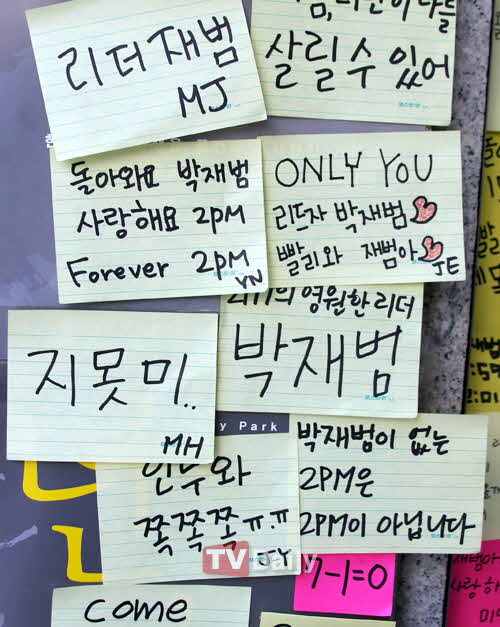 리더 재범
MJ
살릴 수 있어
돌아와요 박재범
사랑해요 2PM
Forever 2PM
YN
ONLY YOU
리드자 박재범
빨리와 재범아
JE
영원한 리더
박재범
지못미..
MH
y Park
쪽쪽쪽 ㅠ.ㅠ
JY
박재범이 없는
2PM은
2PM이 아닙니다
TV Daily
7-1=0
come
재범아
사랑하